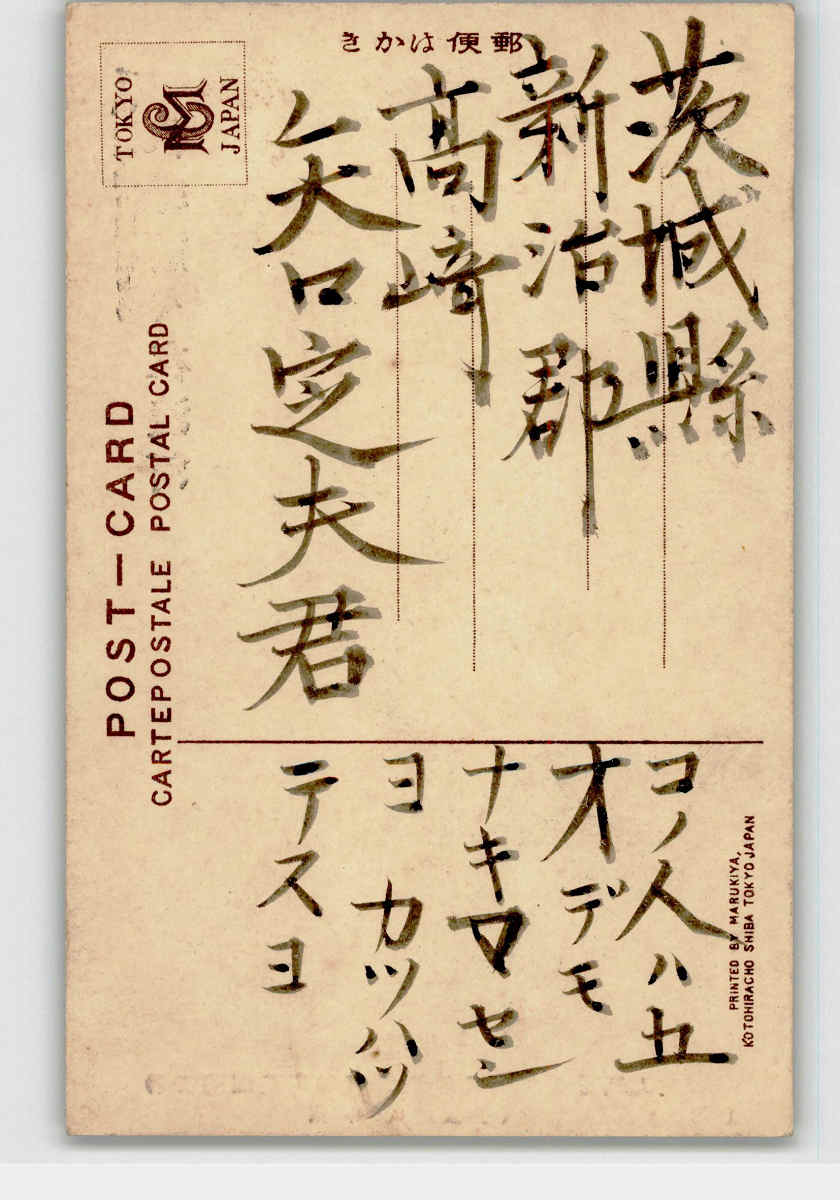 郵便はかき
茨城縣
新治郡
高崎
矢口定夫君
コノ人ハ五
才デモ
ナキマセン
ヨ カツハツ
テスヨ
TOKYO
JAPAN
POST-CARD
CARTEPOSTALE POSTAL CARD
PRINTED BY MARUKIYA,
KOTOHIRACHO SHIBA TOKYO JAPAN